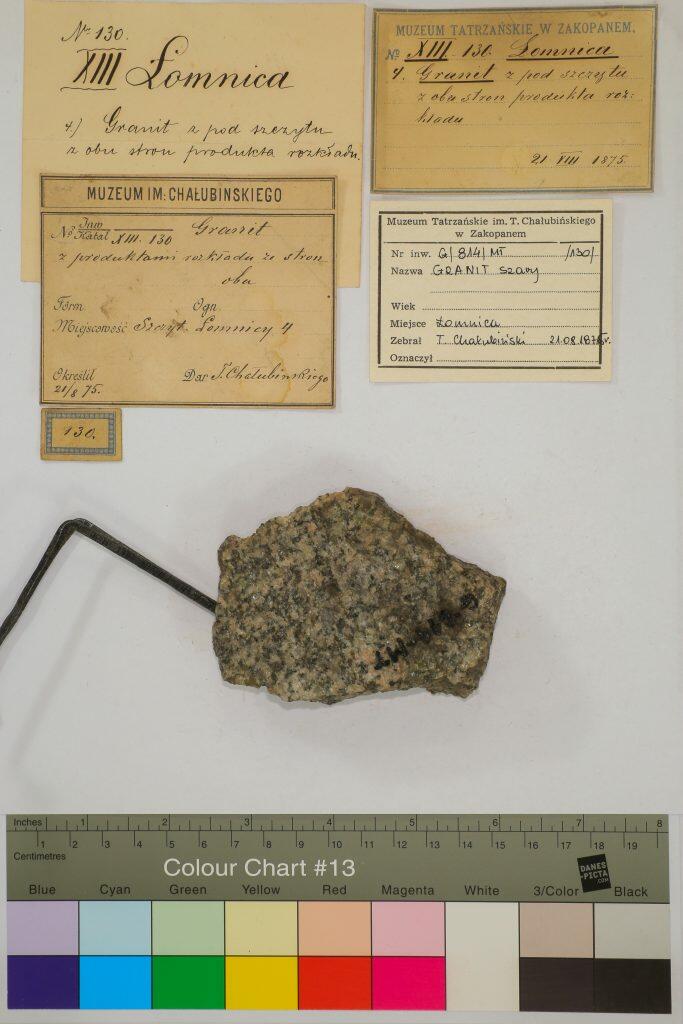 No 130.
XIII Łomnica
4.) Granit z pod szczytu
z obu stron produkta rozkładu.
MUZEUM TATRZAŃSKIE W ZAKOPANEM.
No XIII. 130. Łomnica
4. Granit z pod szczytu
z obu stron produkta roz-
kładu
21 VIII 1875.
MUZEUM IM: CHAŁUBIŃSKIEGO
No Inw
Katal XIII. 130 Granit
z produktami rozkładu ze stron
obu
Form. Ogn.
Miejscowość Szczyt Łomnicy 4
Określił Dar T. Chałubińskiego
21/8 75.
130.
Muzeum Tatrzańskie im. T. Chałubińskiego
w Zakopanem
Nr inw. G/814/MT /130/
Nazwa GRANIT szary
Wiek
Miejsce Łomnica
Zebrał T. Chałubiński 21.08.1875r.
Oznaczył
Inches 1 2 3 4 5 6 7 8
1 2 3 4 5 6 7 8 9 10 11 12 13 14 15 16 17 18 19
Centimetres
Colour Chart #13
DANES
-PICTA
.COM
Blue Cyan Green Yellow Red Magenta White 3/Color Black